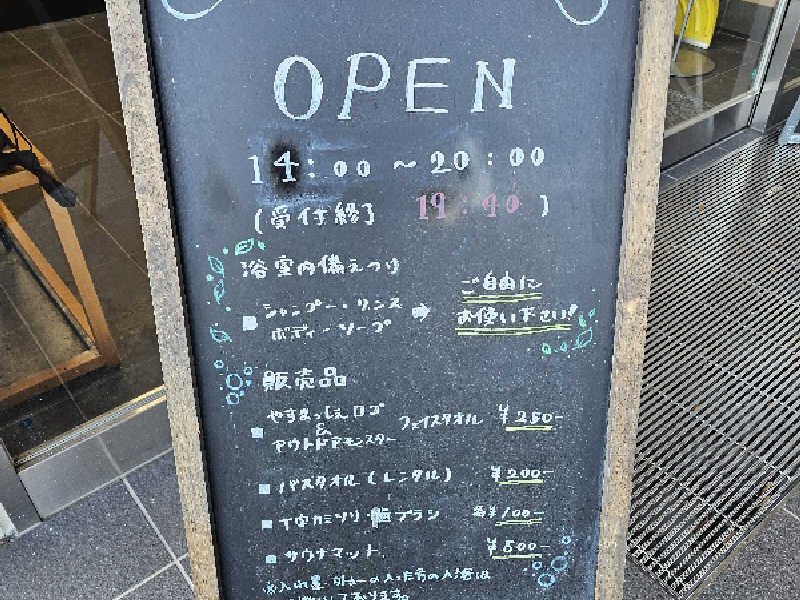 OPEN
14:00 ～ 20:00
(受付終了 19:40)
浴室内備えつけ
■ シャンプー・リンス
ボディーソープ
➡ ご自由に
お使い下さい!
販売品
■ やすまっしぇロゴ
&
アウトドアモンスター
フェイスタオル ¥250-
■ バスタオル(レンタル) ¥200-
■ T字カミソリ 歯ブラシ 各¥100-
■ サウナマット ¥500-
※入れ墨、タトゥーの入った方の入浴は
しております。